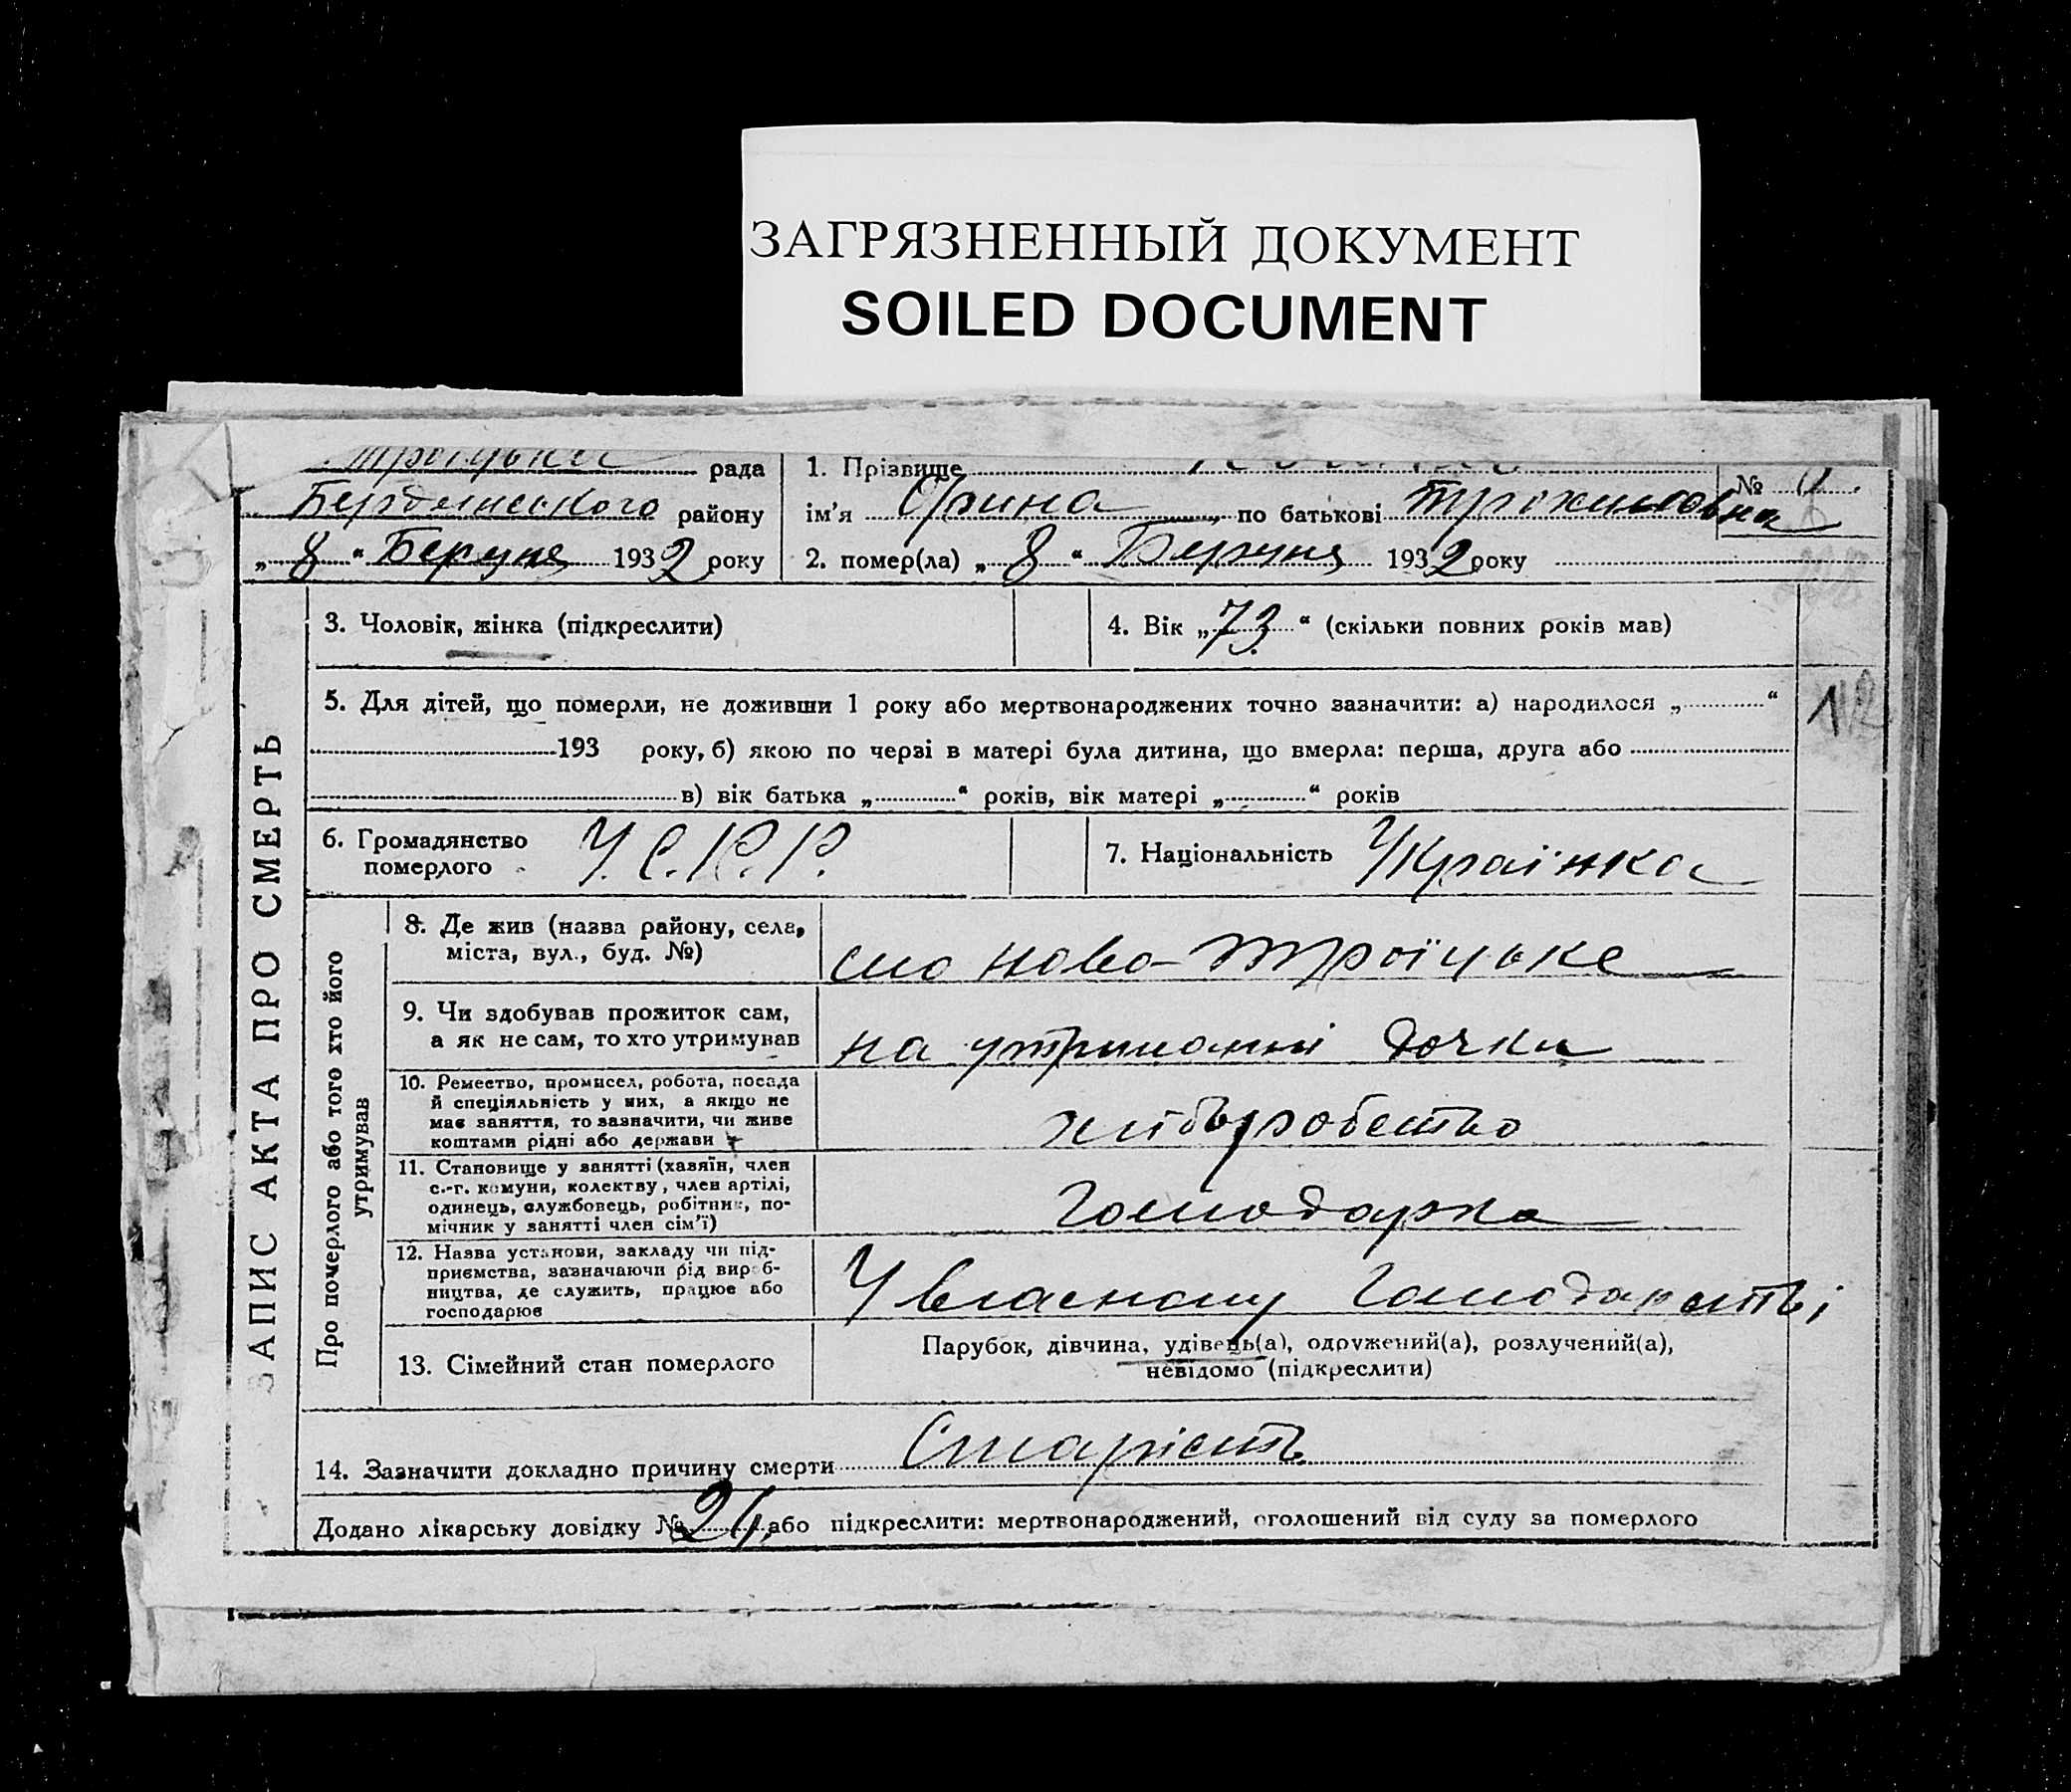 ЗАГРЯЗНЕННЫЙ ДОКУМЕНТ
SOILED DOCUMENT
рада
Бердянського району
„ 8 “ Берзня 1932 року
1. Прізвище
№
ім'я Орина по батькові Трохимовна
2. помер(ла) „ 8 “ Берзня 1932 року
ЗАПИС АКТА ПРО СМЕРТЬ
3. Чоловік, жінка (підкреслити)
4. Вік „ 73 “ (скільки повних років мав)
5. Для дітей, що померли, не доживши 1 року або мертвонароджених точно зазначити: а) народилося „ “
193 року, б) якою по черзі в матері була дитина, що вмерла: перша, друга або
в) вік батька „ “ років, вік матері „ “ років
112
6. Громадянство померлого У.С.Р.Р.
7. Національність Українка
Про померлого або того хто його утримував
8. Де жив (назва району, села,
міста, вул., буд. №)
село Ново-Троїцьке
9. Чи здобував прожиток сам,
а як не сам, то хто утримував
на утриманні дочки
10. Ремество, промисел, робота, посада
й спеціяльність у них, а якщо не
має заняття, то зазначити, чи живе
коштами рідні або держави
хліборобство
11. Становище у занятті (хазяїн, член
с.-г. комуни, колектву, член артілі,
одинець, службовець, робітник, по-
мічник у занятті член сім'ї)
Господарка
12. Назва установи, закладу чи під-
приємства, зазначаючи рід вироб-
ництва, де служить, працює або
господарює
У власному господарстві
13. Сімейний стан померлого
Парубок, дівчина, удівець(а), одружений(а), розлучений(а),
невідомо (підкреслити)
14. Зазначити докладно причину смерти Старість
Додано лікарську довідку № або підкреслити: мертвонароджений, оголошений від суду за померлого